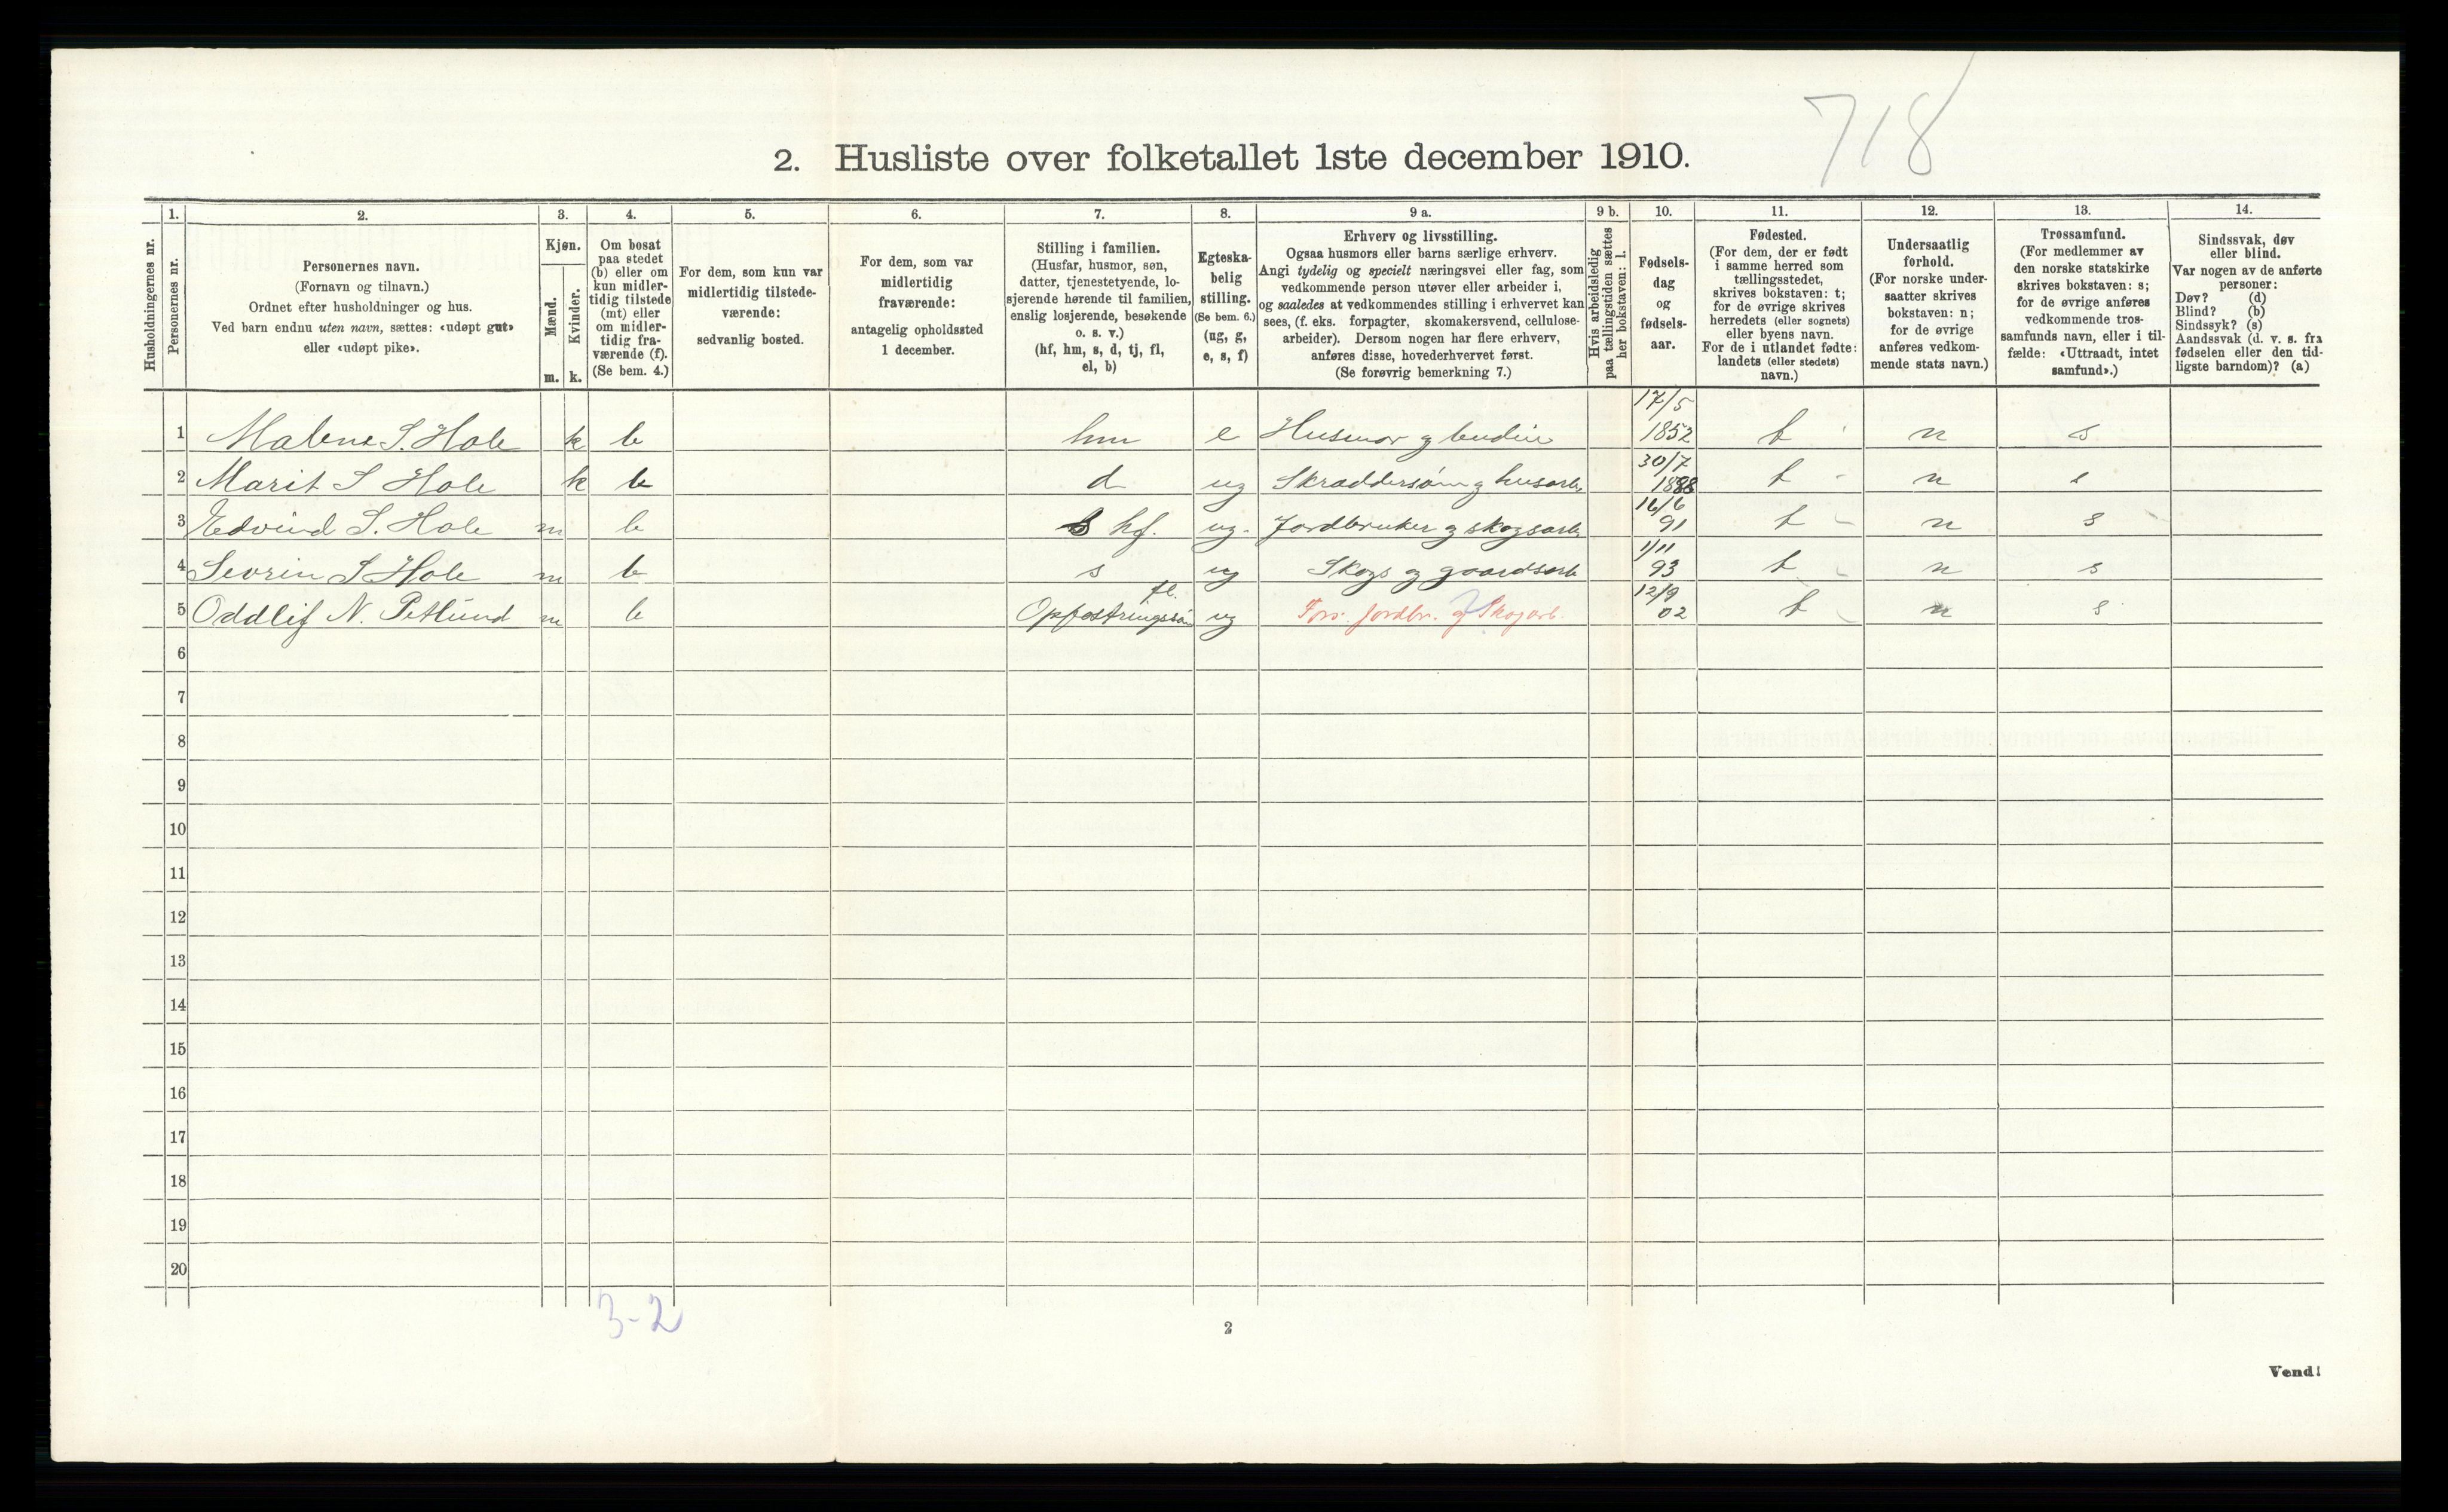 718
2. Husliste over folketallet 1ste december 1910.
Husholdningernes nr.
1.
Personernes nr.
2.
Personernes navn.
(Fornavn og tilnavn.)
Ordnet efter husholdninger og hus.
Ved barn endnu uten navn, sættes: «udøpt gut»
eller «udøpt pike».
3.
Kjøn.
Mænd.
Kvinder.
m. k.
4.
Om bosat
paa stedet
(b) eller om
kun midler-
tidig tilstede
(mt) eller
om midler-
tidig fra-
værende (f).
(Se bem. 4.)
5.
For dem, som kun var
midlertidig tilstede-
værende:
sedvanlig bosted.
6.
For dem, som var
midlertidig
fraværende:
antagelig opholdssted
1 december.
7.
Stilling i familien.
(Husfar, husmor, søn,
datter, tjenestetyende, lo-
sjerende hørende til familien,
enslig losjerende, besøkende
o. s. v.)
(hf, hm, s, d, tj, fl,
el, b)
8.
Egteska-
belig
stilling.
(Se bem. 6.)
(ug, g,
e, s, f)
9 a.
Erhverv og livsstilling.
Ogsaa husmors eller barns særlige erhverv.
Angi tydelig og specielt næringsvei eller fag, som
vedkommende person utøver eller arbeider i,
og saaledes at vedkommendes stilling i erhvervet kan
sees, (f. eks. forpagter, skomakersvend, cellulose-
arbeider). Dersom nogen har flere erhverv,
anføres disse, hovederhvervet først.
(Se forøvrig bemerkning 7.)
9 b.
Hvis arbeidsledig
paa tællingstiden sættes
her bokstaven: l.
10.
Fødsels-
dag
og
fødsels-
aar.
11.
Fødested.
(For dem, der er født
i samme herred som
tællingsstedet,
skrives bokstaven: t;
for de øvrige skrives
herredets (eller sognets)
eller byens navn.
For de i utlandet fødte:
landets (eller stedets)
navn.)
12.
Undersaatlig
forhold.
(For norske under-
saatter skrives
bokstaven: n;
for de øvrige
anføres vedkom-
mende stats navn.)
13.
Trossamfund.
(For medlemmer av
den norske statskirke
skrives bokstaven: s;
for de øvrige anføres
vedkommende tros-
samfunds navn, eller i til-
fælde: «Uttraadt, intet
samfund».)
14.
Sindssvak, døv
eller blind.
Var nogen av de anførte
personer:
Døv? (d)
Blind? (b)
Sindssyk? (s)
Aandssvak (d. v. s. fra
fødselen eller den tid-
ligste barndom)? (a)
1 Malene S. Hole k b hm e Husmor g 17/5 1852 t n s
2 Marit S Hole k b d ug Skræddersøm g husarb. 30/7 1888 t n s
3 Edvind S. Hole m b hf. ug. Jordbruker g skogsarb. 16/6 91 t n s
4 Sevrin S Hole m b s ug Skogs og gaardsarb 1/11 93 t n s
5 Oddleif N. Petlund m b Opfostringssøn fl. ug Fors. jordbr. og Skogarb. 12/9 02 t n s
6
7
8
9
10
11
12
13
14
15
16
17
18
19
20
3-2
2
Vend!